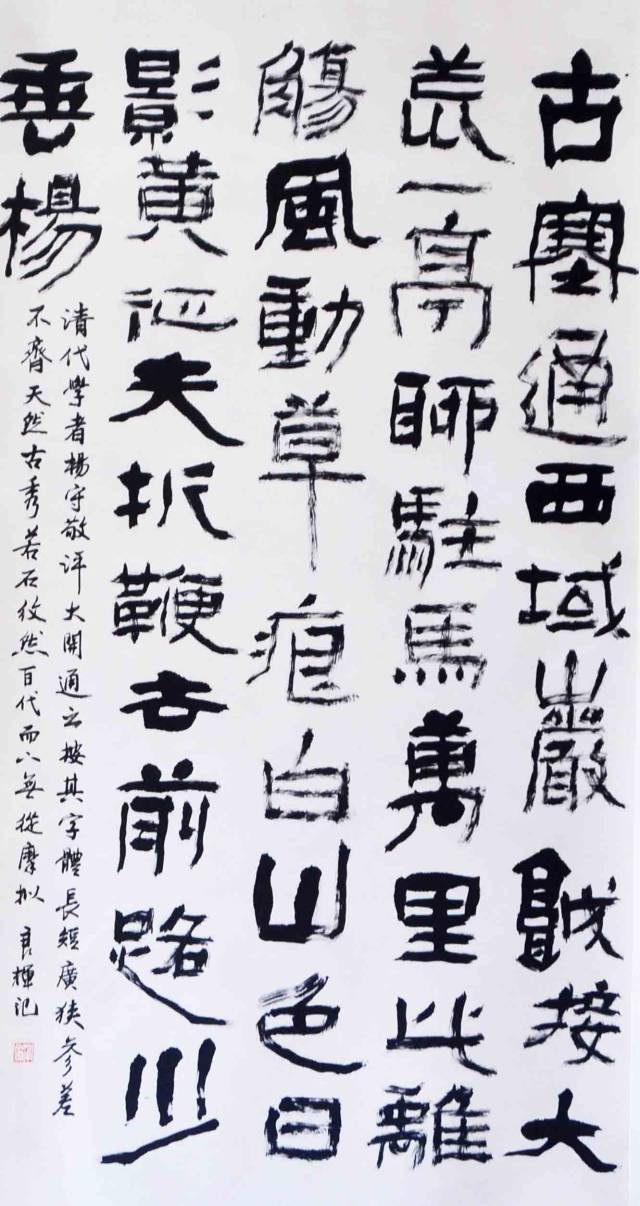 古塞通西域巖城接大
荒一亭聊駐馬萬里此離
觴風動草痕白山色日
影黃征夫折鞭去前路少
垂楊
清代學者楊守敬評大開通云按其字體長短廣狹參差
不齊天然古秀若石紋然百代而下無從摩拟 良輝記